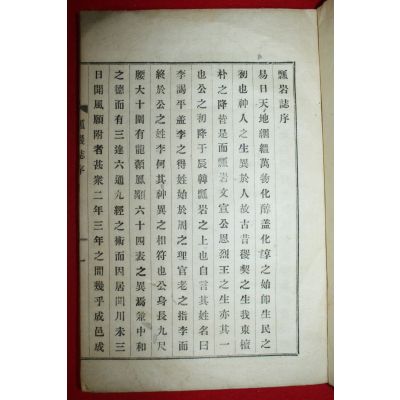 瓢岩誌序
易曰天地絪縕萬物化醇盖化淳之始卽生民之
初也神人之生異於人故古昔稷契之生我東檀
朴之降皆是而瓢岩文宣公恩烈王之生亦其一
也公之初降于辰韓瓢岩之上也自言其姓名曰
李謁平盖李之得姓始於周之理官老之指李而
終於公之姓李何其神異之相符也公身長九尺
腰大十圍有龍顏鳳顙六十四表之異爲兼中和
之德而有三達六通九經之術而因居閼川未三
日開風願附者甚衆二年三年之間幾乎成邑成
瓢巖誌序
一